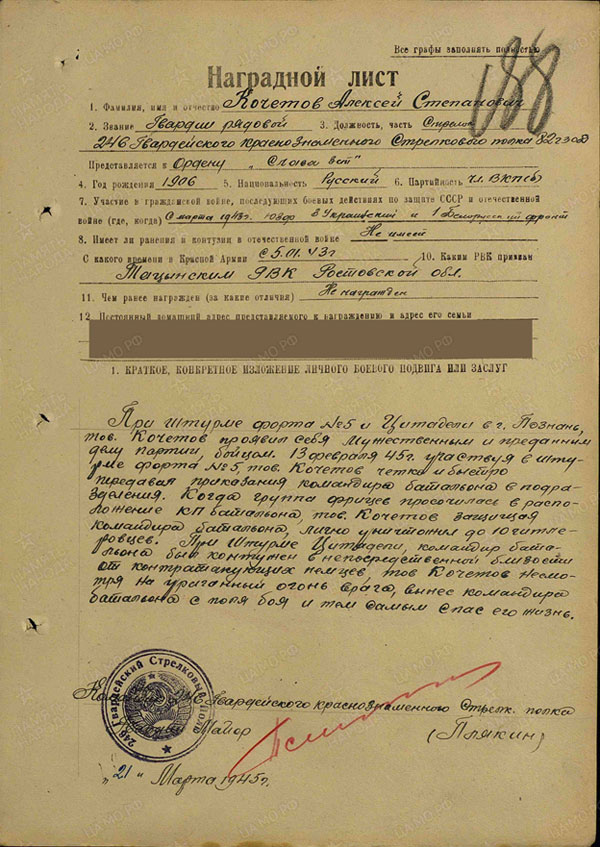 Все графы заполнять полностью
188
Наградной лист
1. Фамилия, имя и отчество Кочетов Алексей Степанович
2. Звание Гвардии рядовой 3. Должность, часть Стрелок
246 Гвардейского краснознаменного Стрелкового полка 82 гзсд
Представляется к Ордену „Слава III ст"
4. Год рождения 1906 5. Национальность Русский 6. Партийность чл. ВКП(б)
7. Участие в гражданской войне, последующих боевых действиях по защите СССР и отечественной
войне (где, когда) С марта 1943г. 3 Украинский и 1 Белорусский фронт
8. Имеет ли ранения и контузии в отечественной войне Не имеет
С какого времени в Красной Армии с 5.01.43г 10. Каким РВК призван
Тацинским РВК Ростовской обл.
11. Чем ранее награжден (за какие отличия) Не награжден
12. Постоянный домашний адрес представляемого к награждению и адрес его семьи
1. КРАТКОЕ, КОНКРЕТНОЕ ИЗЛОЖЕНИЕ ЛИЧНОГО БОЕВОГО ПОДВИГА ИЛИ ЗАСЛУГ
При штурме форта №5 и Цитадели в г. Познань,
тов. Кочетов проявил себя мужественным и преданным
делу партии, бойцом. 13 февраля 45г. участвуя в шту-
рме форта №5, тов. Кочетов четко и быстро
передавал приказания командира батальона в подра-
зделения. Когда группа фрицев просочилась в распо-
ложение КП батальона, тов. Кочетов защищая
командира батальона, лично уничтожил до 10 гитле-
ровцев. При штурме Цитадели, командир бата-
льона был контужен в непосредственной близости
от контратакующих немцев, тов Кочетов несмо-
тря на ураганный огонь врага, вынес командира
батальона с поля боя и тем самым спас его жизнь.
246 Гвардейский Стрелковый полк
Командир 246 Гвардейского краснознаменного Стрелк. полка
Гвардии Майор (Плякин)
„21" Марта 1945г.
ЦАМО.РФ